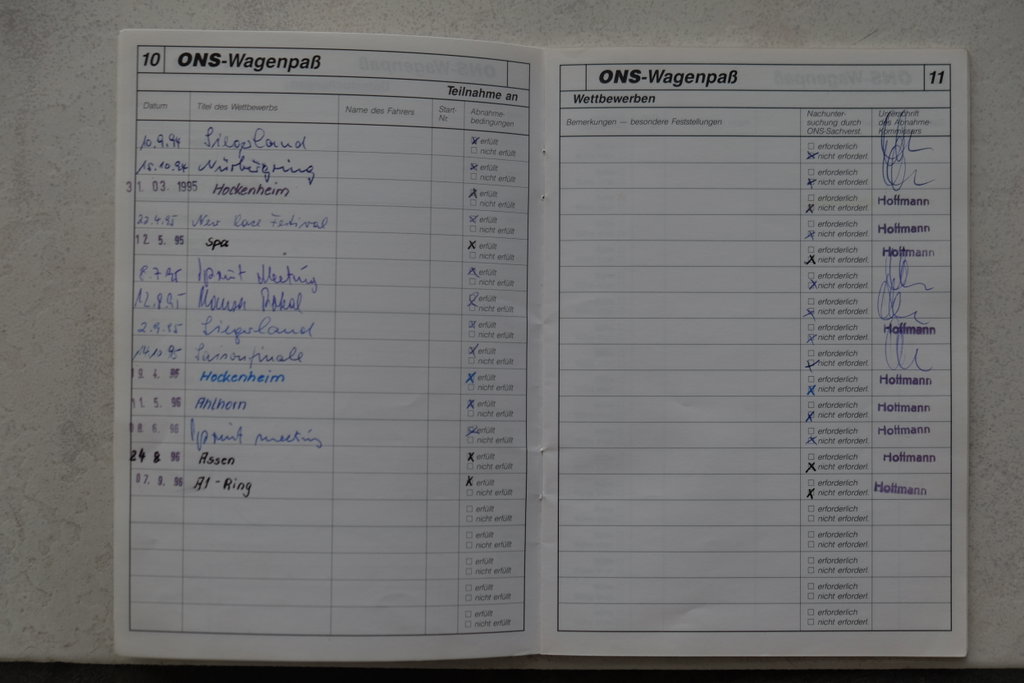 10 ONS-Wagenpaß
Teilnahme an
Datum Titel des Wettbewerbs Name des Fahrers Start-Nr. Abnahme-bedingungen
10.9.94 Siegerland ☒ erfüllt ☐ nicht erfüllt
15.10.94 Nürburgring ☒ erfüllt ☐ nicht erfüllt
31. 03. 1995 Hockenheim ☒ erfüllt ☐ nicht erfüllt
22.4.95 New Race Festival ☒ erfüllt ☐ nicht erfüllt
12. 5. 95 Spa ☒ erfüllt ☐ nicht erfüllt
8.7.95 Sprint Meeting ☒ erfüllt ☐ nicht erfüllt
12.8.95 Pokal ☒ erfüllt ☐ nicht erfüllt
2.9.95 Siegerland ☒ erfüllt ☐ nicht erfüllt
14.10.95 Saisonfinale ☒ erfüllt ☐ nicht erfüllt
19. 4. 96 Hockenheim ☒ erfüllt ☐ nicht erfüllt
11. 5. 96 Ahlhorn ☒ erfüllt ☐ nicht erfüllt
08. 6. 96 Sprint meeting ☒ erfüllt ☐ nicht erfüllt
24 8 96 Assen ☒ erfüllt ☐ nicht erfüllt
07. 9. 96 A1-Ring ☒ erfüllt ☐ nicht erfüllt
☐ erfüllt ☐ nicht erfüllt
☐ erfüllt ☐ nicht erfüllt
☐ erfüllt ☐ nicht erfüllt
☐ erfüllt ☐ nicht erfüllt
☐ erfüllt ☐ nicht erfüllt
ONS-Wagenpaß 11
Wettbewerben
Bemerkungen — besondere Feststellungen Nachunter-suchung durch ONS-Sachverst. Unterschrift des Abnahme-Kommissars
☐ erforderlich ☒ nicht erforderl.
☐ erforderlich ☒ nicht erforderl.
☐ erforderlich ☒ nicht erforderl. Hoffmann
☐ erforderlich ☒ nicht erforderl. Hoffmann
☐ erforderlich ☒ nicht erforderl. Hoffmann
☐ erforderlich ☒ nicht erforderl.
☐ erforderlich ☒ nicht erforderl.
☐ erforderlich ☒ nicht erforderl. Hoffmann
☐ erforderlich ☒ nicht erforderl.
☐ erforderlich ☒ nicht erforderl. Hoffmann
☐ erforderlich ☒ nicht erforderl. Hoffmann
☐ erforderlich ☒ nicht erforderl. Hoffmann
☐ erforderlich ☒ nicht erforderl. Hoffmann
☐ erforderlich ☒ nicht erforderl. Hoffmann
☐ erforderlich ☐ nicht erforderl.
☐ erforderlich ☐ nicht erforderl.
☐ erforderlich ☐ nicht erforderl.
☐ erforderlich ☐ nicht erforderl.
☐ erforderlich ☐ nicht erforderl.